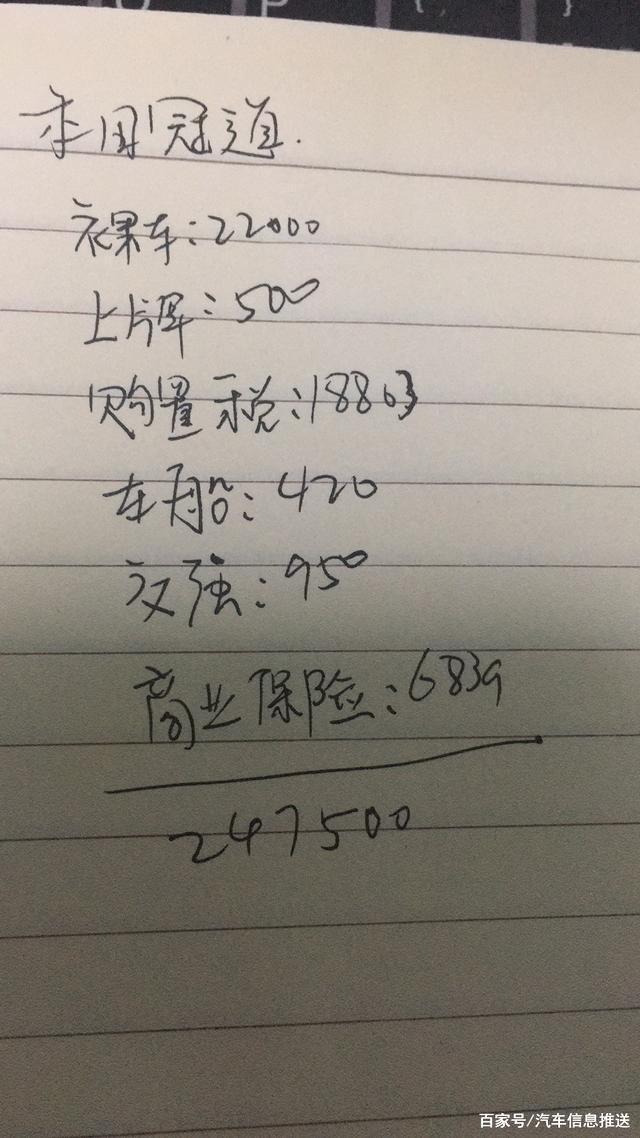 本田冠道.
裸车:22000
上牌:500
购置税:18863
车船:420
交强:950
商业保险:6839
247500
百家号/汽车信息推送